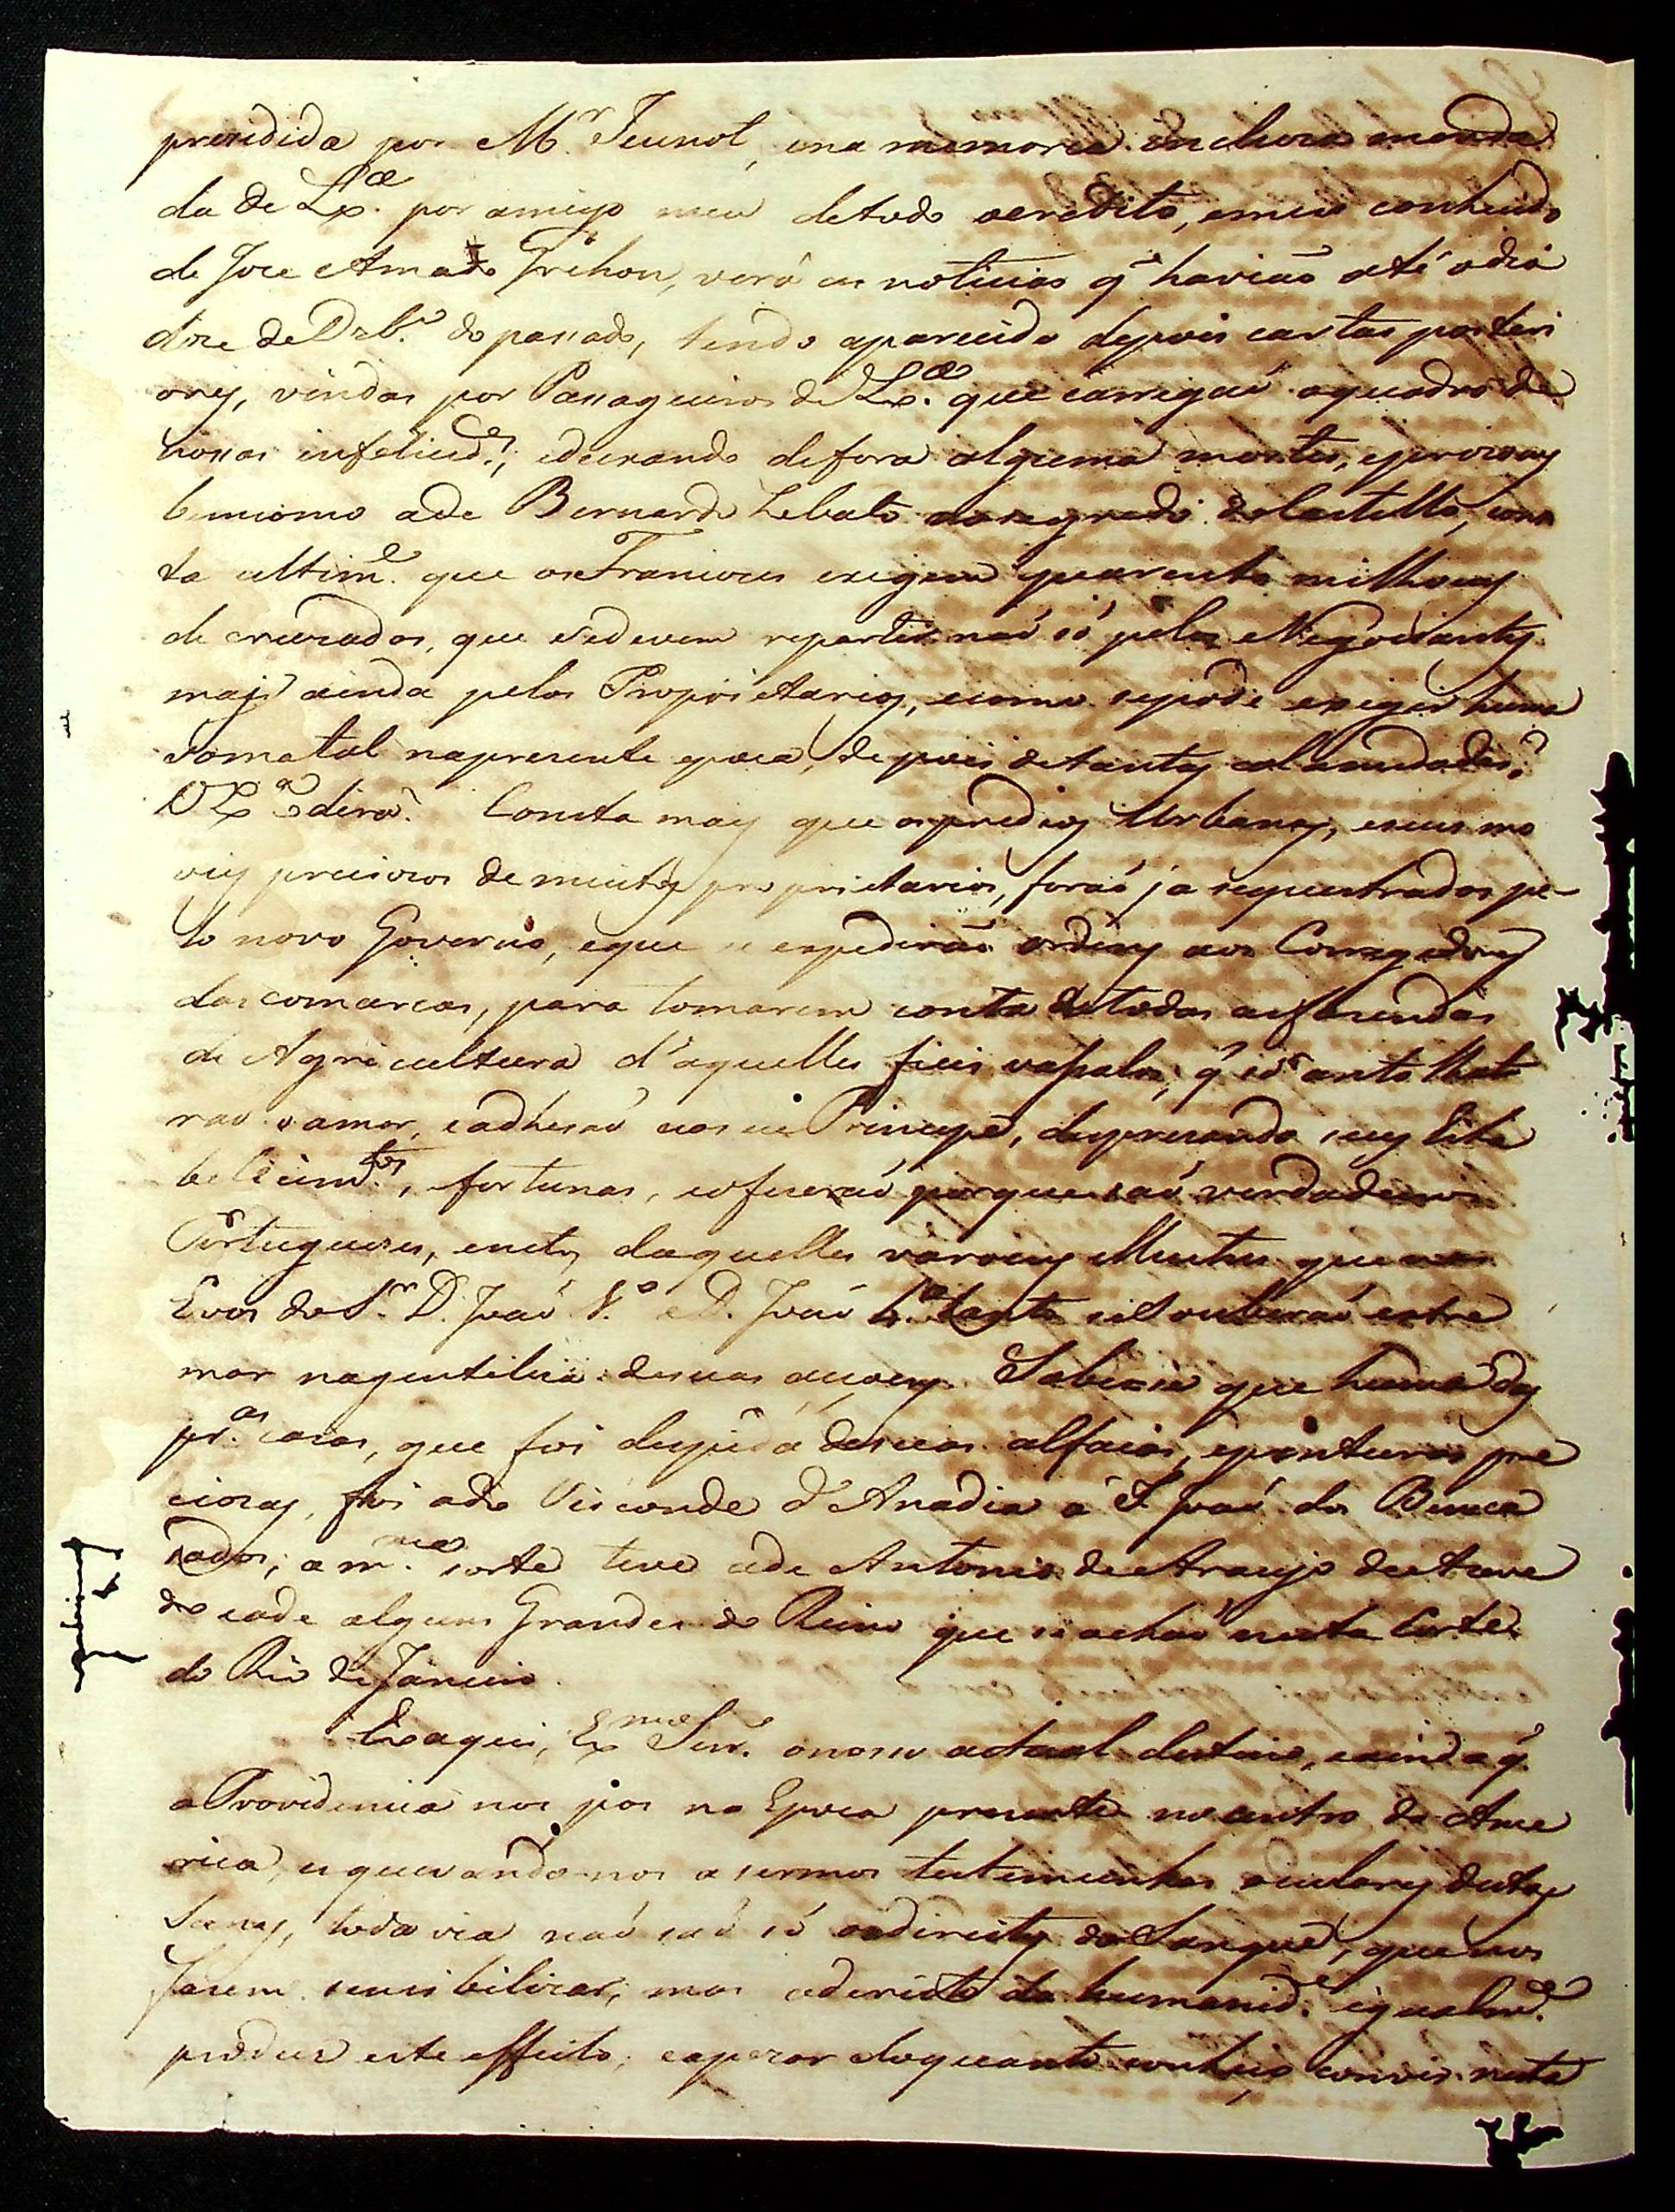 presidida por Mr. Jeunot, e na memoria incluza manda
da de Lxa. por amigo meu de todo acredito, e meu conhecido
de Joze Amado Grehon, verá as noticias q' haviaõ até o dia
doze de Dzbr.º do passado, tendo aparecido depois cartas posteri
ores, vindas por Passageiros de Lxa. que carregaõ o quadro de
nossas infelicid.es, e deixando de fora alguma mortes, e prizoens
bemcomo a de Bernardo Lobato no segredo do Castello, cons
ta ultim.e que os Francezes exigem quarenta milhoens
de cruzados, que se devem repartir naõ só pelos Negociantes
mais ainda pelos Proprietarios, e como se pode exigir huma
soma tal na presente epoca, depois de tantas calamidades?
V Exa. o dirá. Consta mais que os predios Urbanos, e seus mo
veis preciozos de muitos proprietarios, foraõ ja sequestrados pe-
lo novo Governo, e que se expediraõ ordens aos Corregedores
das comarcas, para tomarem conta de todas as fazendas
de Agricultura d'aquelles fieis vassalos, q' só
raõ o amor, e adhesaõ ao seu Principe, desprezando seus Esta
belecim.tos, fortunas, e o fizeraõ porque saõ verdadeiros
Portuguezes, e netos daquelles varoens Illustres que nas
Eras do Sr. D. Joaõ 1.º e D. Joaõ 4.º tanto se souberaõ extre
mar na gentileza de suas acçoens. Sabe-se que huma das
pr.as casas, que foi despida de suas alfaias, e pinturas pre
ciozas, foi a do Visconde d'Anadia a S. Joaõ dos Bemca
zados; a m.ma sorte teve a de Antonio de Araujo de Azeve
do e a de alguns Grandes do Reino que se achaõ nesta Corte
do Rio de Janeiro.
Exaqui, Exmo Senr. o nosso actual destino, e ainda q'
a Providencia nos pos na Epoca prezente no centro da Ame
rica, esquivando-nos a sermos testemunhas oculares destas
Scenas, toda via naõ saõ só os direitos do Sangue, que nos
fazem sensibilizar, mas o direito da humanid.e igualm.e
produz este effeito; e apezar do quanto conheço convir nesta